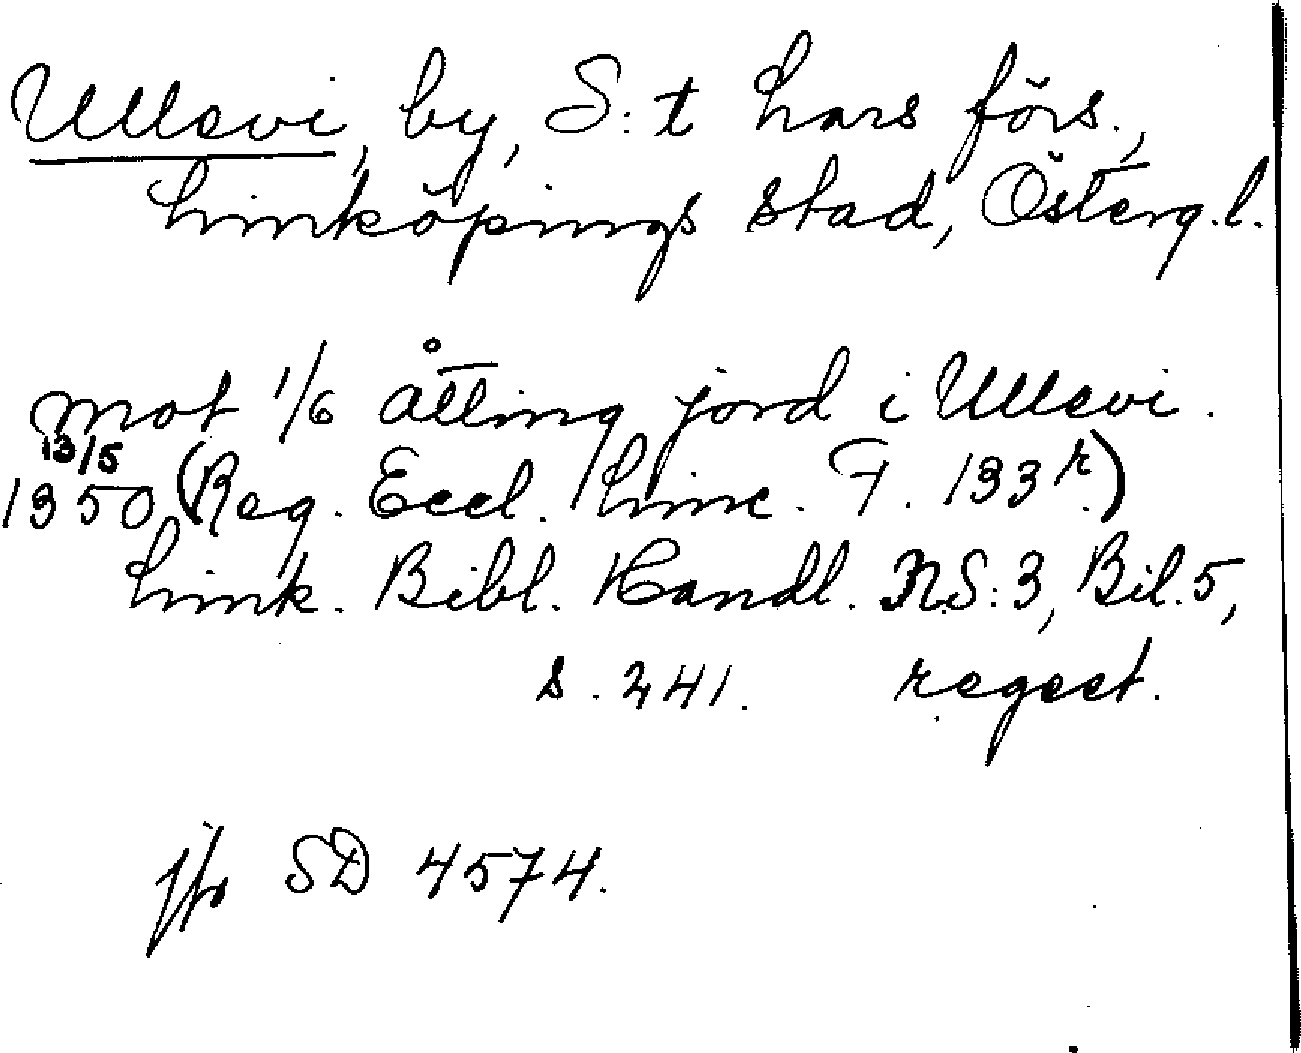 Ullevi, by, S:t Lars förs.,
Linköpings stad, Österg.l.
mot 1/6 åtting jord i Ullevi.
13/5
1350 (Reg. Eccl. Linc. F. 133 r)
Link. Bibl. Handl. NS:3, Bil.5,
s. 241. regest.
jfr SD 4574.